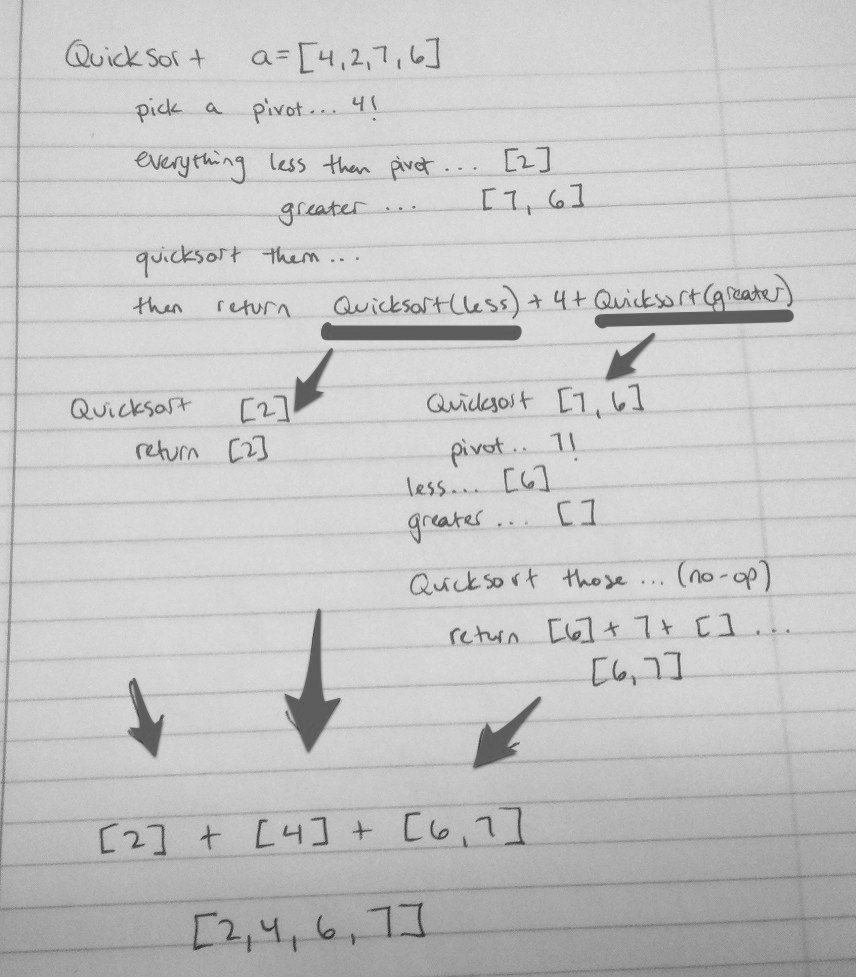 Quicksort a=[4,2,7,6]
pick a pivot... 4!
everything less then pivot... [2]
greater ... [7, 6]
quicksort them...
then return Quicksort(less) + 4 + Quicksort(greater)
Quicksort [2]
return [2]
Quicksort [7, 6]
pivot.. 7!
less... [6]
greater ... []
Quicksort those ... (no-op)
return [6] + 7 + [] ...
[6,7]
[2] + [4] + [6,7]
[2,4,6,7]